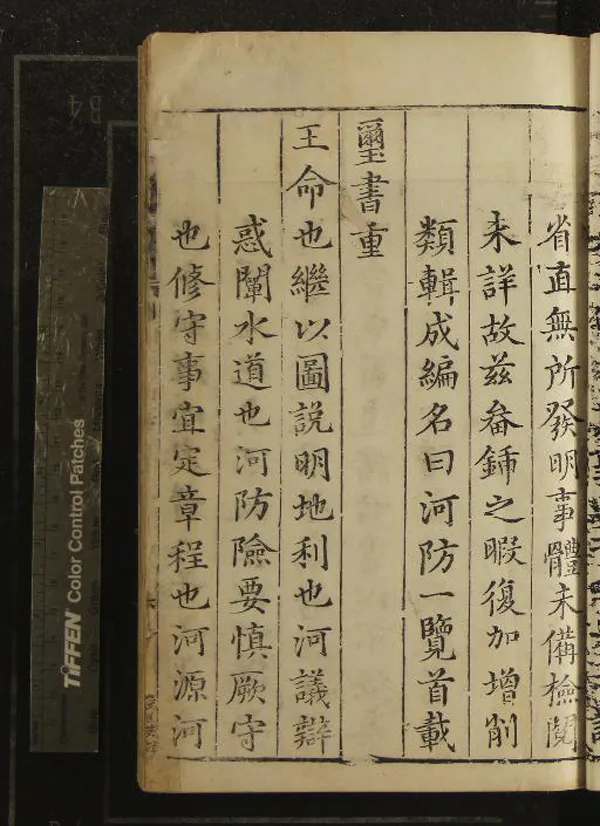 省直無所發明事體未備檢閱
未詳故茲畚鍤之暇復加增削
類輯成編名曰河防一覽首載
璽書重
王命也繼以圖說明地利也河議辯
惑闡水道也河防險要慎厥守
也修守事宜定章程也河源河
TIFFEN Color Control Patches
B4